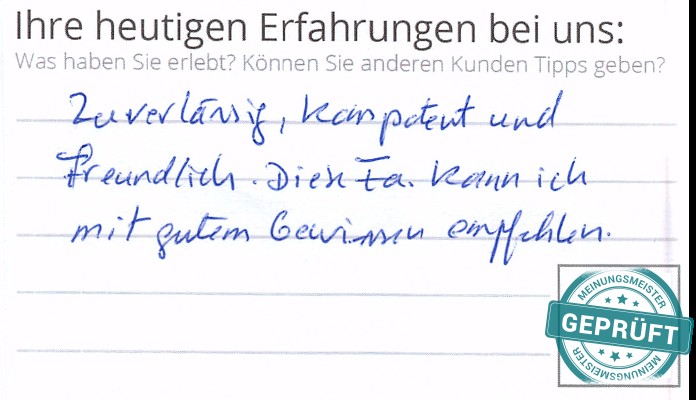 Ihre heutigen Erfahrungen bei uns:
Was haben Sie erlebt? Können Sie anderen Kunden Tipps geben?
Zuverlässig, kompetent und
freundlich. Diese Fa. kann ich
mit gutem Gewissen empfehlen.
MEINUNGSMEISTER
GEPRÜFT
MEINUNGSMEISTER